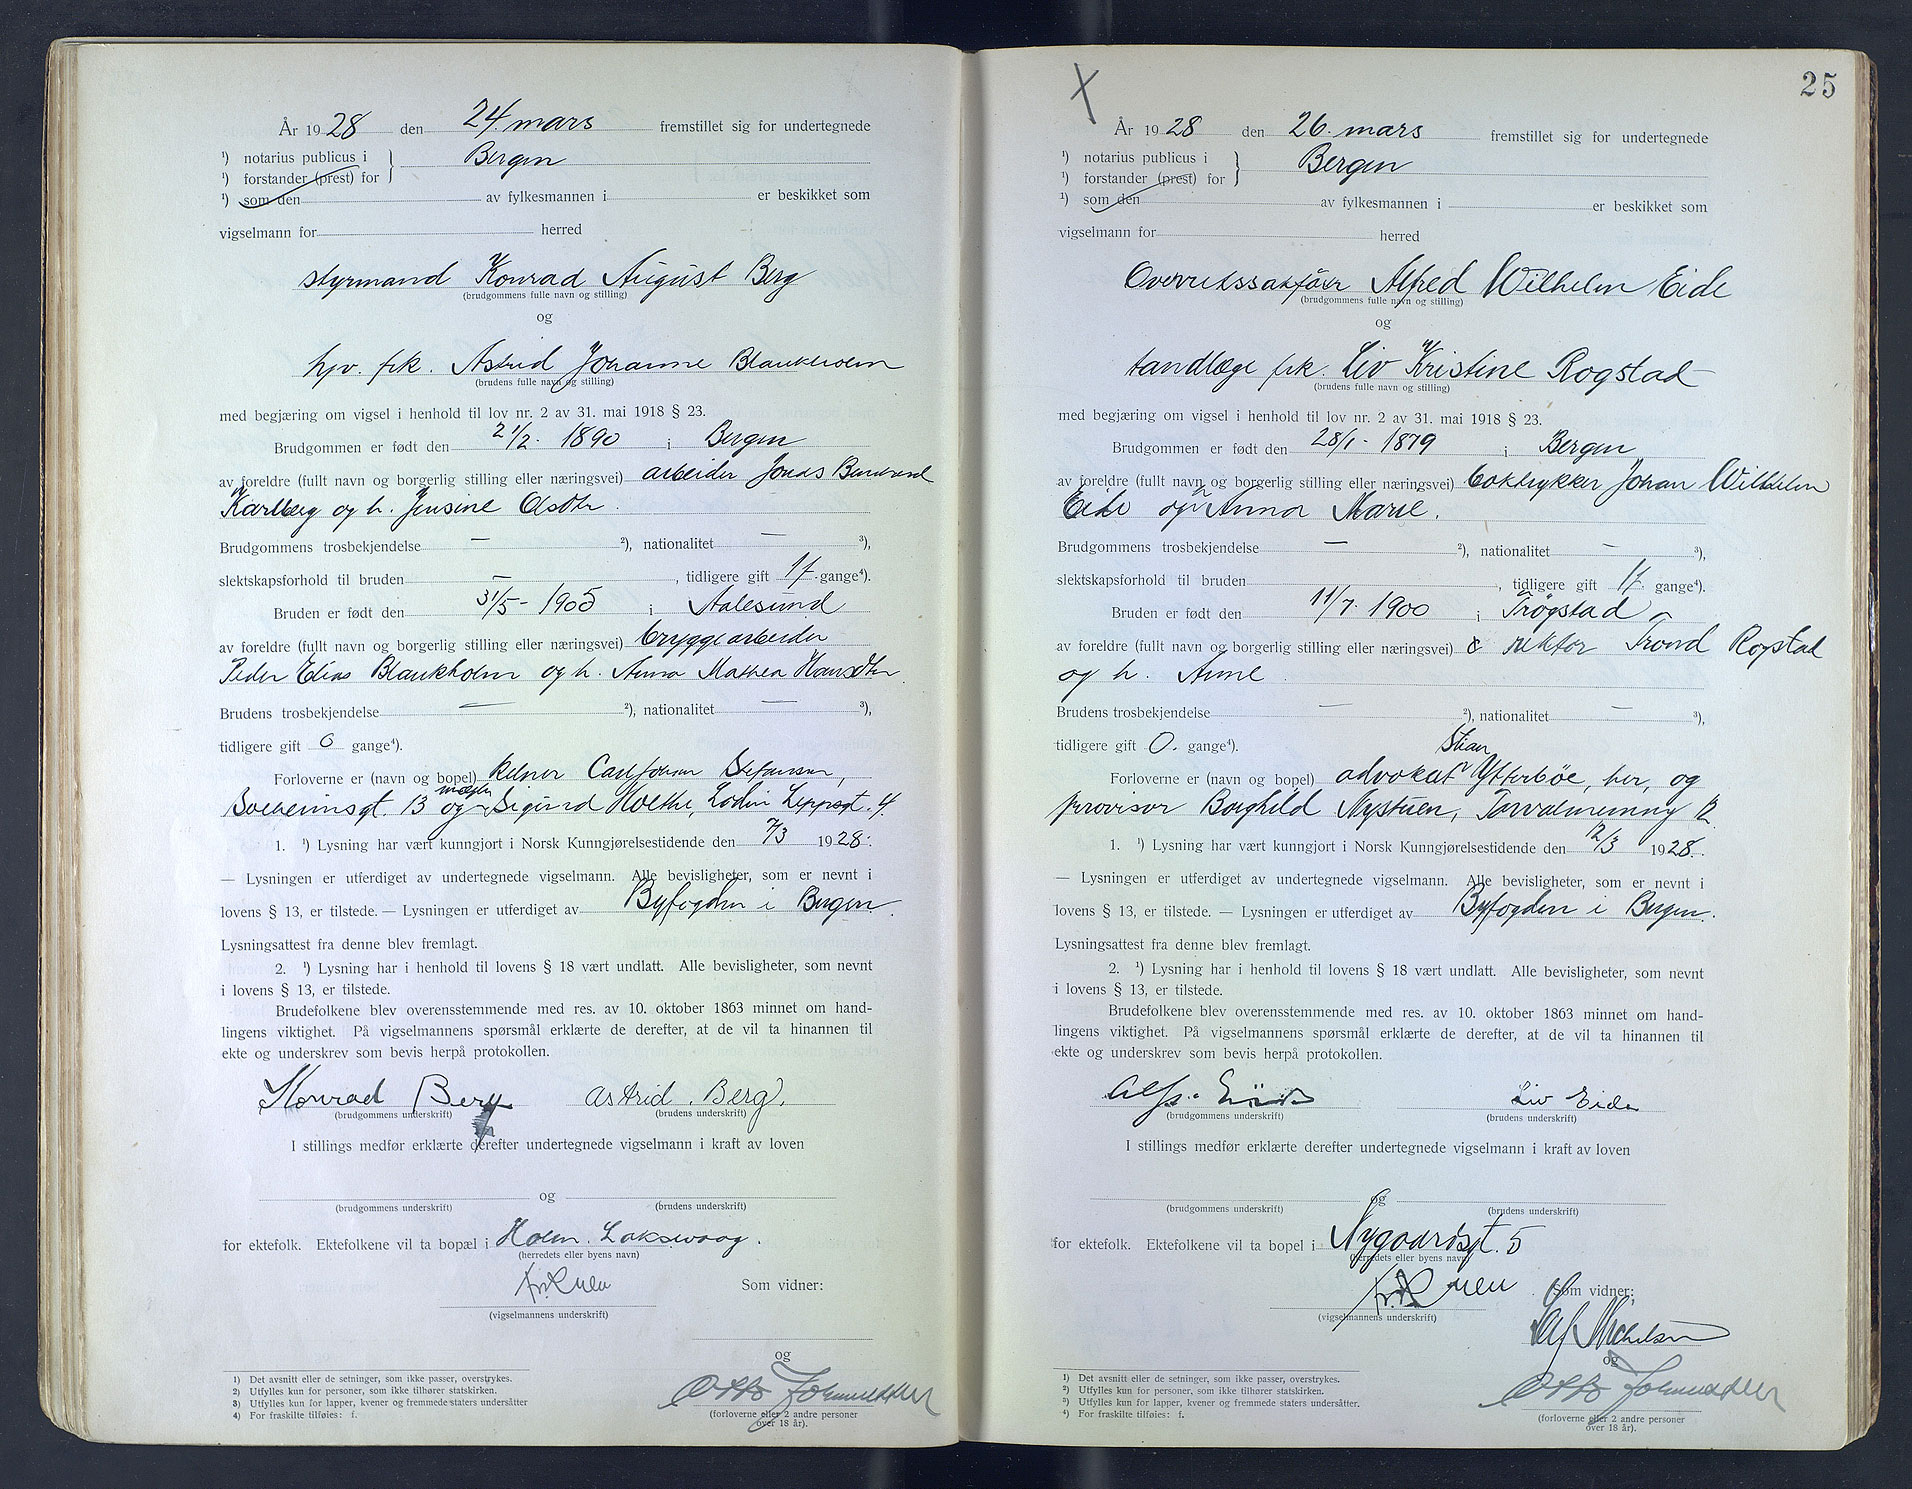 År 19 28 den 24. mars fremstillet sig for undertegnede
¹) notarius publicus i } Bergen
¹) forstander (prest) for
¹) som den av fylkesmannen i er beskikket som
vigselmann for herred
styrmand Konrad August Berg
(brudgommens fulle navn og stilling)
og
hjv. frk. Astrid Johanne Blankholm
(brudens fulle navn og stilling)
med begjæring om vigsel i henhold til lov nr. 2 av 31. mai 1918 § 23.
Brudgommen er født den 21/2 - 1890 i Bergen
av foreldre (fullt navn og borgerlig stilling eller næringsvei) arbeider Jonas
Karlberg og h. Jensine Olsdtr.
Brudgommens trosbekjendelse — ²), nationalitet — ³),
slektskapsforhold til bruden — , tidligere gift 1 f. gange⁴).
Bruden er født den 31/5 - 1905 i Aalesund
av foreldre (fullt navn og borgerlig stilling eller næringsvei) bryggearbeider
Peder Elias Blankholm og h. Anna Mathea Hansdtr.
Brudens trosbekjendelse — ²), nationalitet — ³),
tidligere gift 0 gange⁴).
Forloverne er (navn og bopel) kelner Carl Johan Stefansen,
13 og mægler Sigurd Holthe, Lodin Leppsgt. 4.
1. ¹) Lysning har vært kunngjort i Norsk Kunngjørelsestidende den 7/3 1928.
— Lysningen er utferdiget av undertegnede vigselmann. Alle bevisligheter, som er nevnt i
lovens § 13, er tilstede. — Lysningen er utferdiget av Byfogden i Bergen.
Lysningsattest fra denne blev fremlagt.
2. ¹) Lysning har i henhold til lovens § 18 vært undlatt. Alle bevisligheter, som nevnt
i lovens § 13, er tilstede.
Brudefolkene blev overensstemmende med res. av 10. oktober 1863 minnet om hand-
lingens viktighet. På vigselmannens spørsmål erklærte de derefter, at de vil ta hinannen til
ekte og underskrev som bevis herpå protokollen.
Konrad Berg Astrid. Berg.
(brudgommens underskrift) (brudens underskrift)
I stillings medfør erklærte derefter undertegnede vigselmann i kraft av loven
og
(brudgommens underskrift) (brudens underskrift)
for ektefolk. Ektefolkene vil ta bopæl i Holen. Laksevaag.
(herredets eller byens navn)
Som vidner:
(vigselmannens underskrift)
og
Otto
(forloverne eller 2 andre personer
over 18 år).
1) Det avsnitt eller de setninger, som ikke passer, overstrykes.
2) Utfylles kun for personer, som ikke tilhører statskirken.
3) Utfylles kun for lapper, kvener og fremmede staters undersåtter
4) For fraskilte tilføies: f.
25
År 19 28 den 26. mars fremstillet sig for undertegnede
¹) notarius publicus i } Bergen
¹) forstander (prest) for
¹) som den av fylkesmannen i er beskikket som
vigselmann for herred
Overretssakfører Alfred Wilhelm Eide
(brudgommens fulle navn og stilling)
og
tandlæge frk. Liv Kristine Rogstad
(brudens fulle navn og stilling)
med begjæring om vigsel i henhold til lov nr. 2 av 31. mai 1918 § 23.
Brudgommen er født den 28/1 - 1879 i Bergen
av foreldre (fullt navn og borgerlig stilling eller næringsvei) boktrykker Johan Wilhelm
Eide og h. Anna Marie.
Brudgommens trosbekjendelse — ²), nationalitet — ³),
slektskapsforhold til bruden , tidligere gift 1 f. gange⁴).
Bruden er født den 11/7. 1900 i Trøgstad
av foreldre (fullt navn og borgerlig stilling eller næringsvei) rektor Trond Rogstad
og h. Anne
Brudens trosbekjendelse — ²), nationalitet — ³),
tidligere gift 0. gange⁴).
Forloverne er (navn og bopel) advokat Stian Ytterbøe, her, og
provisor Borghild Nystuen, Torvalmenning 12.
1. ¹) Lysning har vært kunngjort i Norsk Kunngjørelsestidende den 12/3 1928.
— Lysningen er utferdiget av undertegnede vigselmann. Alle bevisligheter, som er nevnt i
lovens § 13, er tilstede. — Lysningen er utferdiget av Byfogden i Bergen.
Lysningsattest fra denne blev fremlagt.
2. ¹) Lysning har i henhold til lovens § 18 vært undlatt. Alle bevisligheter, som nevnt
i lovens § 13, er tilstede.
Brudefolkene blev overensstemmende med res. av 10. oktober 1863 minnet om hand-
lingens viktighet. På vigselmannens spørsmål erklærte de derefter, at de vil ta hinannen til
ekte og underskrev som bevis herpå protokollen.
Alf. Eide Liv Eide
(brudgommens underskrift) (brudens underskrift)
I stillings medfør erklærte derefter undertegnede vigselmann i kraft av loven
og
(brudgommens underskrift) (brudens underskrift)
for ektefolk. Ektefolkene vil ta bopel i Nygaardsgt. 5
(herredets eller byens navn)
Som vidner:
(vigselmannens underskrift)
Michelsen
og
Otto
(forloverne eller 2 andre personer
over 18 år).
¹) Det avsnitt eller de setninger, som ikke passer, overstrykes.
²) Utfylles kun for personer, som ikke tilhører statskirken.
³) Utfylles kun for lapper, kvener og fremmede staters undersåtter.
⁴) For fraskilte tilføies: f.